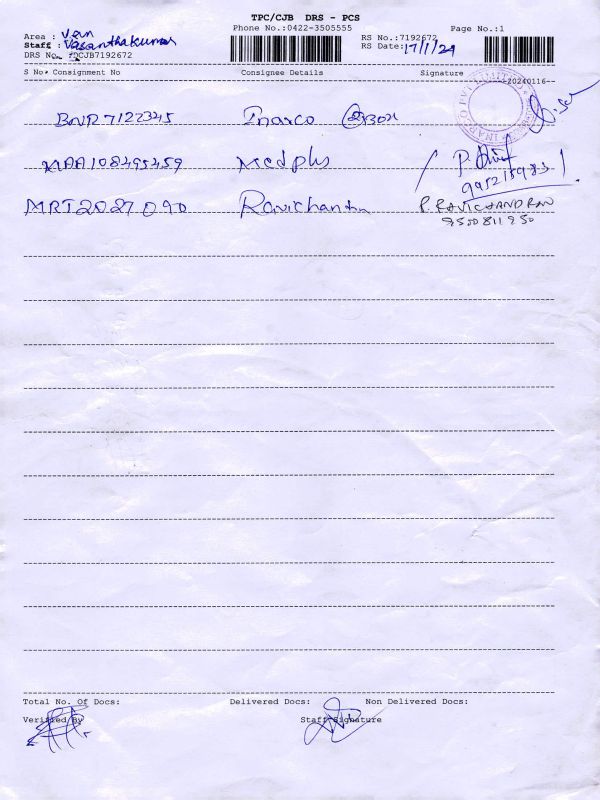 TPC/CJB DRS - PCS
Phone No.:0422-3505555
Page No.:1
Area : Van
Staff : Vasanthakumar
DRS No. CJB7192672
RS No.:7192672
RS Date:17/1/24
S No. Consignment No Consignee Details Signature
20240116
BNR7122345 Inarco
MAA108495459 Medpls P.
9952159831
MRT2027090 Ravichantn P. RAVICHANDRAN
9500811950
Total No. Of Docs: Delivered Docs: Non Delivered Docs:
Verified By Staff Signature